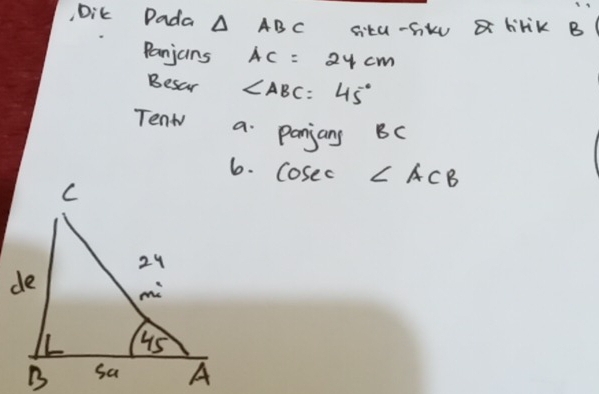 Dik Pada Δ ABC siku-siku di titik B
Panjang AC = 24 cm
Besar ∠ABC = 45°
Tentu a. panjang BC
b. Cosec ∠ ACB
C
de
24
mi
45
B
sa
A